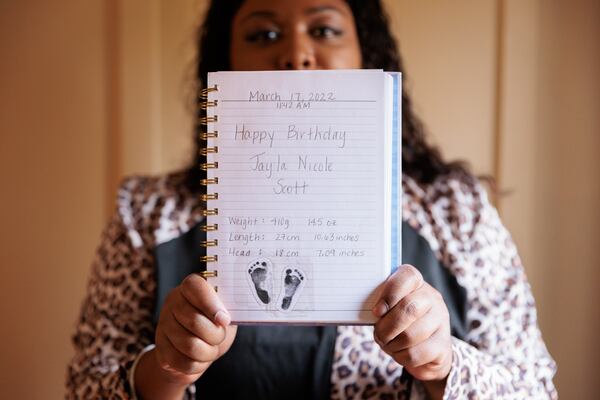 March 17, 2022
11:42 AM
Happy Birthday
Jayla Nicole
Scott
Weight: 410g 14.5 oz
Length: 27cm 10.63 inches
Head: 18cm 7.09 inches